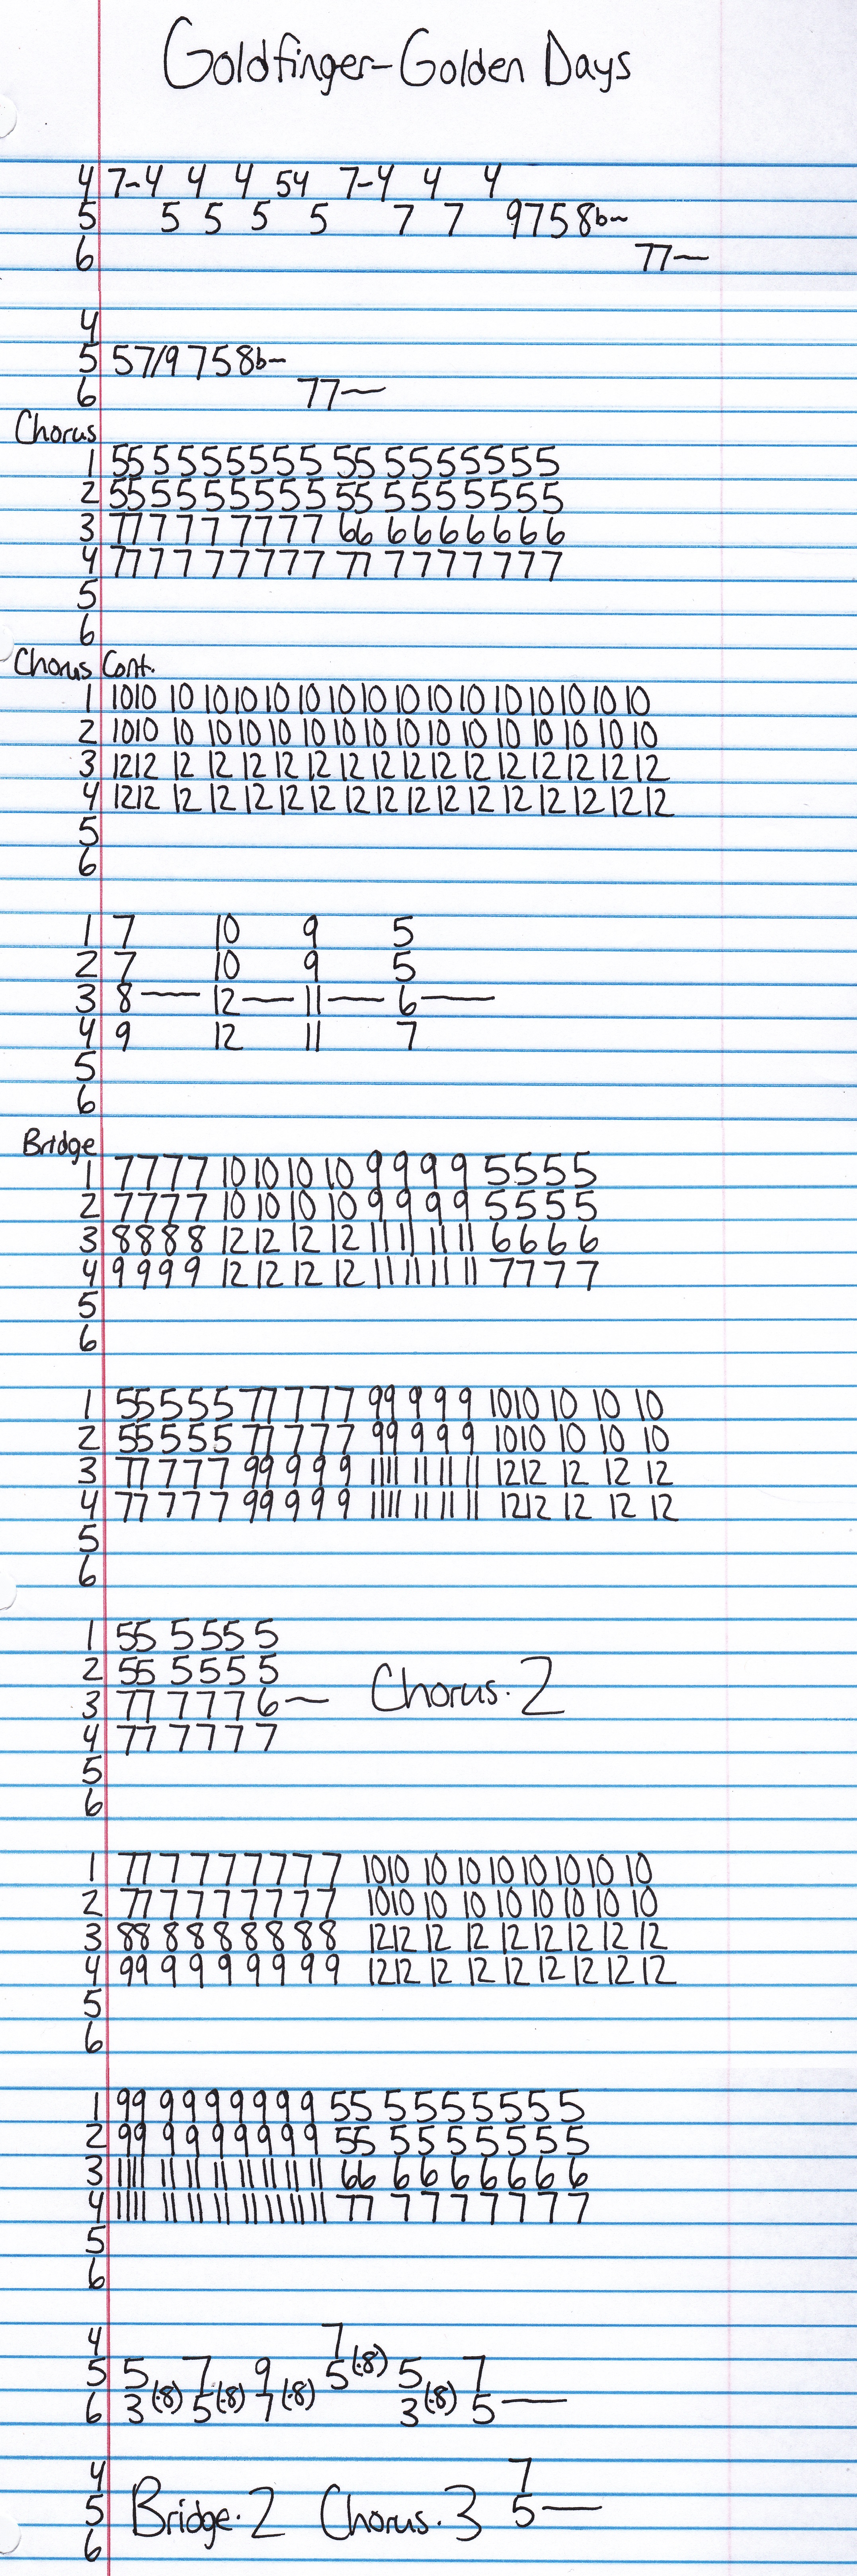 Goldfinger-Golden Days
4 7-4 4 4 54 7-4 4 4
5 5 5 5 5 7 7 9758b~
6 77—
4
5 57/9 758b~
6 77—
Chorus
1 55 5 5 5 5 5 5 5 55 5 5 5 5 5 5 5
2 55 5 5 5 5 5 5 5 55 5 5 5 5 5 5 5
3 77 7 7 7 7 7 7 7 66 6 6 6 6 6 6 6
4 77 7 7 7 7 7 7 7 77 7 7 7 7 7 7 7
5
6
Chorus Cont.
1 1010 10 10 10 10 10 10 10 10 10 10 10 10 10 10 10
2 1010 10 10 10 10 10 10 10 10 10 10 10 10 10 10 10
3 1212 12 12 12 12 12 12 12 12 12 12 12 12 12 12 12
4 1212 12 12 12 12 12 12 12 12 12 12 12 12 12 12 12
5
6
1 7 10 9 5
2 7 10 9 5
3 8—12—11—6—
4 9 12 11 7
5
6
Bridge
1 7777 10 10 10 10 9 9 9 9 5555
2 7777 10 10 10 10 9 9 9 9 5555
3 8888 12 12 12 12 11 11 11 11 6 6 6 6
4 9999 12 12 12 12 11 11 11 11 7777
5
6
1 55 5 5 5 77 7 7 7 99 9 9 9 1010 10 10 10
2 55 5 5 5 77 7 7 7 99 9 9 9 1010 10 10 10
3 77 7 7 7 99 9 9 9 1111 11 11 11 1212 12 12 12
4 77 7 7 7 99 9 9 9 1111 11 11 11 1212 12 12 12
5
6
1 55 5 5 5 5
2 55 5 5 5 5
3 77 7 7 7 6— Chorus·2
4 77 7 7 7 7
5
6
1 77 7 7 7 7 7 7 7 1010 10 10 10 10 10 10 10
2 77 7 7 7 7 7 7 7 1010 10 10 10 10 10 10 10
3 88 8 8 8 8 8 8 8 1212 12 12 12 12 12 12 12
4 99 9 9 9 9 9 9 9 1212 12 12 12 12 12 12 12
5
6
1 99 9 9 9 9 9 9 9 55 5 5 5 5 5 5 5
2 99 9 9 9 9 9 9 9 55 5 5 5 5 5 5 5
3 1111 11 11 11 11 11 11 11 66 6 6 6 6 6 6 6
4 1111 11 11 11 11 11 11 11 77 7 7 7 7 7 7 7
5
6
4 7
5 5 7 9 5(·8) 5 7
6 3(·8) 5(·8) 7(·8) 3(·8) 5—
4 7
5 Bridge·2 Chorus·3 5—
6